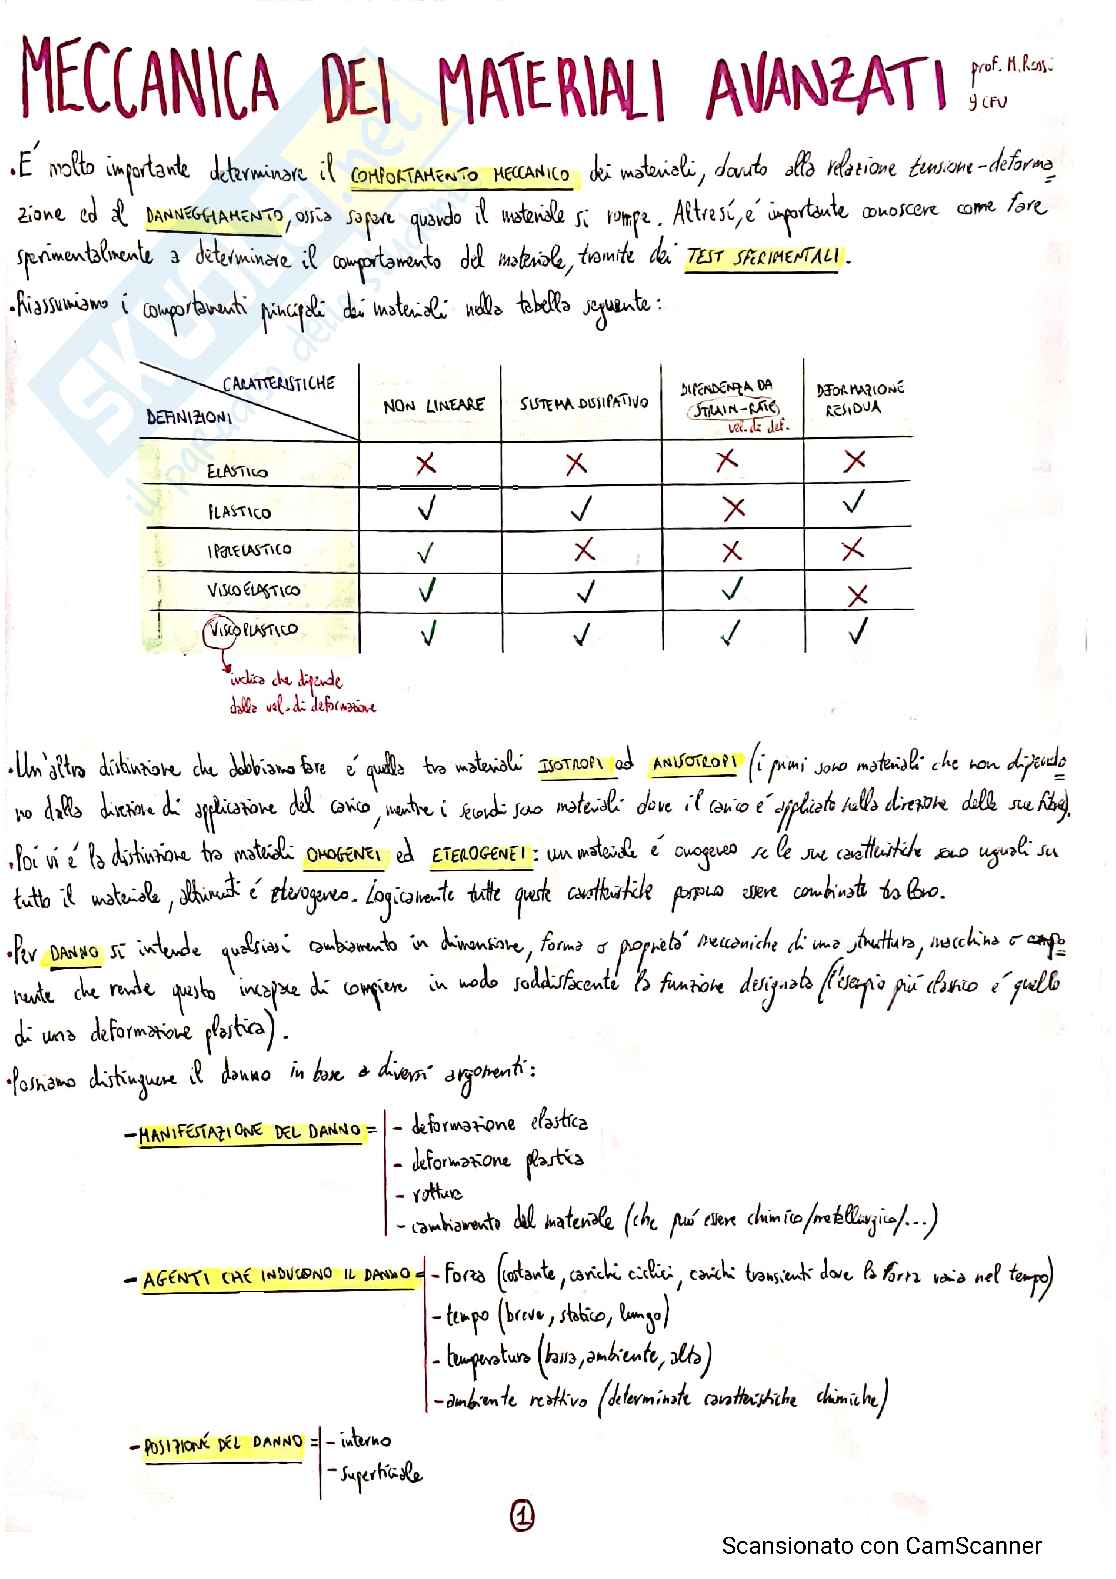 MECCANICA DEI MATERIALI AVANZATI prof. M. Rossi
9 CFU
• É molto importante determinare il COMPORTAMENTO MECCANICO dei materiali, dovuto alla relazione tensione-deforma
zione ed al DANNEGGIAMENTO, ossia sapere quando il materiale si rompe. Altresí, é importante conoscere come fare
sperimentalmente a determinare il comportamento del materiale, tramite dei TEST SPERIMENTALI.
• Riassumiamo i comportamenti principali dei materiali nella tabella seguente:
CARATTERISTICHE
DEFINIZIONI
NON LINEARE
SISTEMA DISSIPATIVO
DIPENDENZA DA
STRAIN-RATE
vel. di def.
DEFORMAZIONE
RESIDUA
ELASTICO X X X X
PLASTICO ✓ ✓ X ✓
IPERELASTICO ✓ X X X
VISCOELASTICO ✓ ✓ ✓ X
VISCOPLASTICO ✓ ✓ ✓ ✓
indica che dipende
dalla vel. di deformazione
• Un'altra distinzione che dobbiamo fare é quella tra materiali ISOTROPI ed ANISOTROPI (i primi sono materiali che non dipendo
no dalla direzione di applicazione del carico, mentre i secondi sono materiali dove il carico é applicato nella direzione delle sue fibre).
• Poi vi é la distinzione tra materiali OMOGENEI ed ETEROGENEI: un materiale é omogeneo se le sue caratteristiche sono uguali su
tutto il materiale, altrimenti é eterogeneo. Logicamente tutte queste caratteristiche possono essere combinate tra loro.
• Per DANNO si intende qualsiasi cambiamento in dimensione, forma o proprietá meccaniche di una struttura, macchina o compo
nente che rende questo incapace di compiere in modo soddisfacente la funzione designata (l'esempio piú classico é quello
di una deformazione plastica).
• Possiamo distinguere il danno in base a diversi argomenti:
- MANIFESTAZIONE DEL DANNO = - deformazione elastica
- deformazione plastica
- rottura
- cambiamento del materiale (che puó essere chimico/metallurgico/...)
- AGENTI CHE INDUCONO IL DANNO = - Forza (costante, carichi ciclici, carichi transienti dove la forza varia nel tempo)
- tempo (breve, statico, lungo)
- temperatura (bassa, ambiente, alta)
- ambiente reattivo (determinate caratteristiche chimiche)
- POSIZIONE DEL DANNO = - interno
- superficiale
1
Scansionato con CamScanner